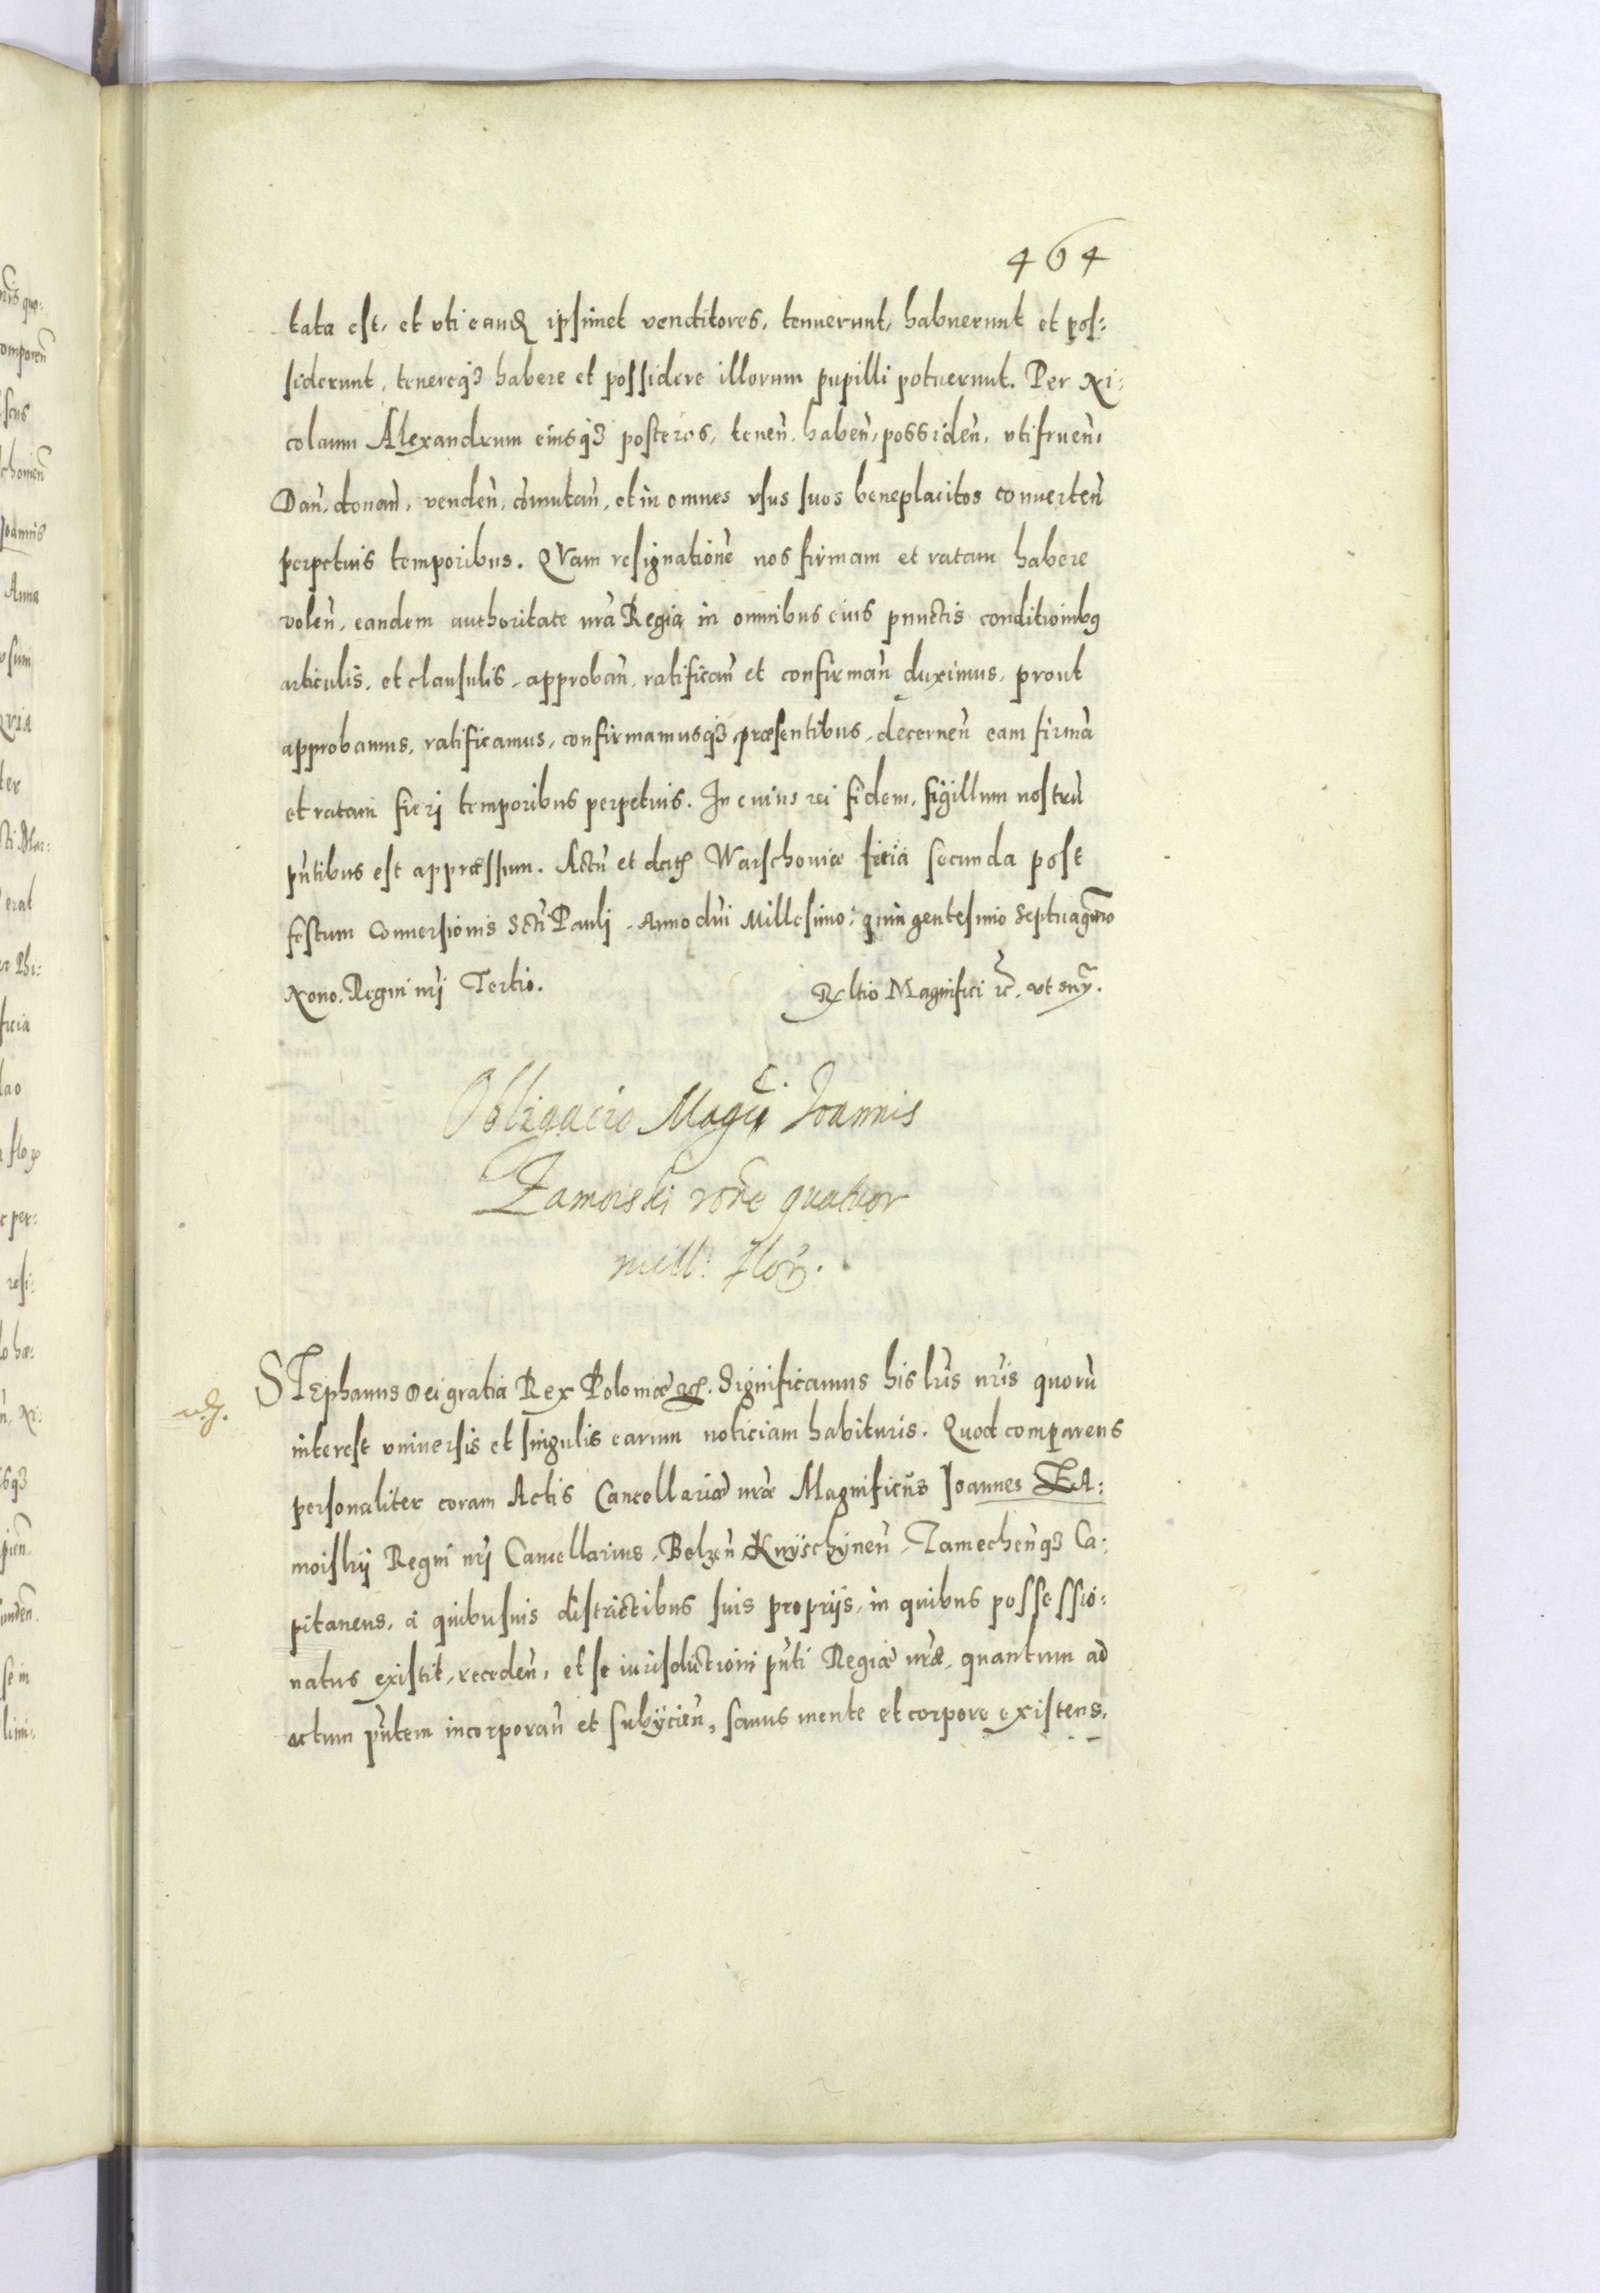 464
tata est, et vti eandē ipsimet venditores, tenuerunt, habuerunt et pos:
siderunt, tenereq3 habere et possidere illorum pupilli potuerunt. Per Ni:
colaum Alexandrum eiusq3 posteros, tenen̄, haben̄, possiden̄, vtifruen̄,
Dan̄, donan̄, venden̄, com̄utan̄, et in omnes vsus suos beneplacitos conuerten̄
perpetuis temporibus. QVam resignationē nos firmam et ratam habere
volen̄, eandem authoritate nrā Regia in omnibus eius punctis conditionibg
articulis, et clausulis, approban̄, ratifican̄ et confirman̄ duximus, prout
approbamus, ratificamus, confirmamusq3 præsentibus, decernen̄ eam firmā
et ratam fieri temporibus perpetuis. In cuius rei fidem, sigillum nostrū
pn̄tibus est appræssum. Actū et datȝ Warschouiæ feria secunda post
festum Conuersionis Scti Pauli, Anno dni Millesimo, quingentesimo Septuagmo
Nono, Regni nrj Tertio. Rltio Magnifici rc̄, vt sup̄.
Obligacio Magci Joannis
Zamoiski rōne quatuor
mill: flor.
STEphanus Dei gratia Rex Poloniæ ꝛcȝ. Significamus his lrīs nrīs quorū
interest vniuersis et singulis earum noticiam habituris. Quod comparens
personaliter coram Actis Cancellariæ nrǣ Magnificus Joannes ZA:
moiskij Regni nrj Cancellarius, Belzen̄ Knÿschÿnen̄, Zamechen̄q3 Ca:
pitaneus, a quibusuis districtibus suis proprijs, in quibus possessio:
natus existit, receden̄, et se iurisdictioni pn̄ti Regiæ nrǣ, quantum ad
actum pn̄tem incorporan̄ et subÿcien̄, sanus mente et corpore existens,